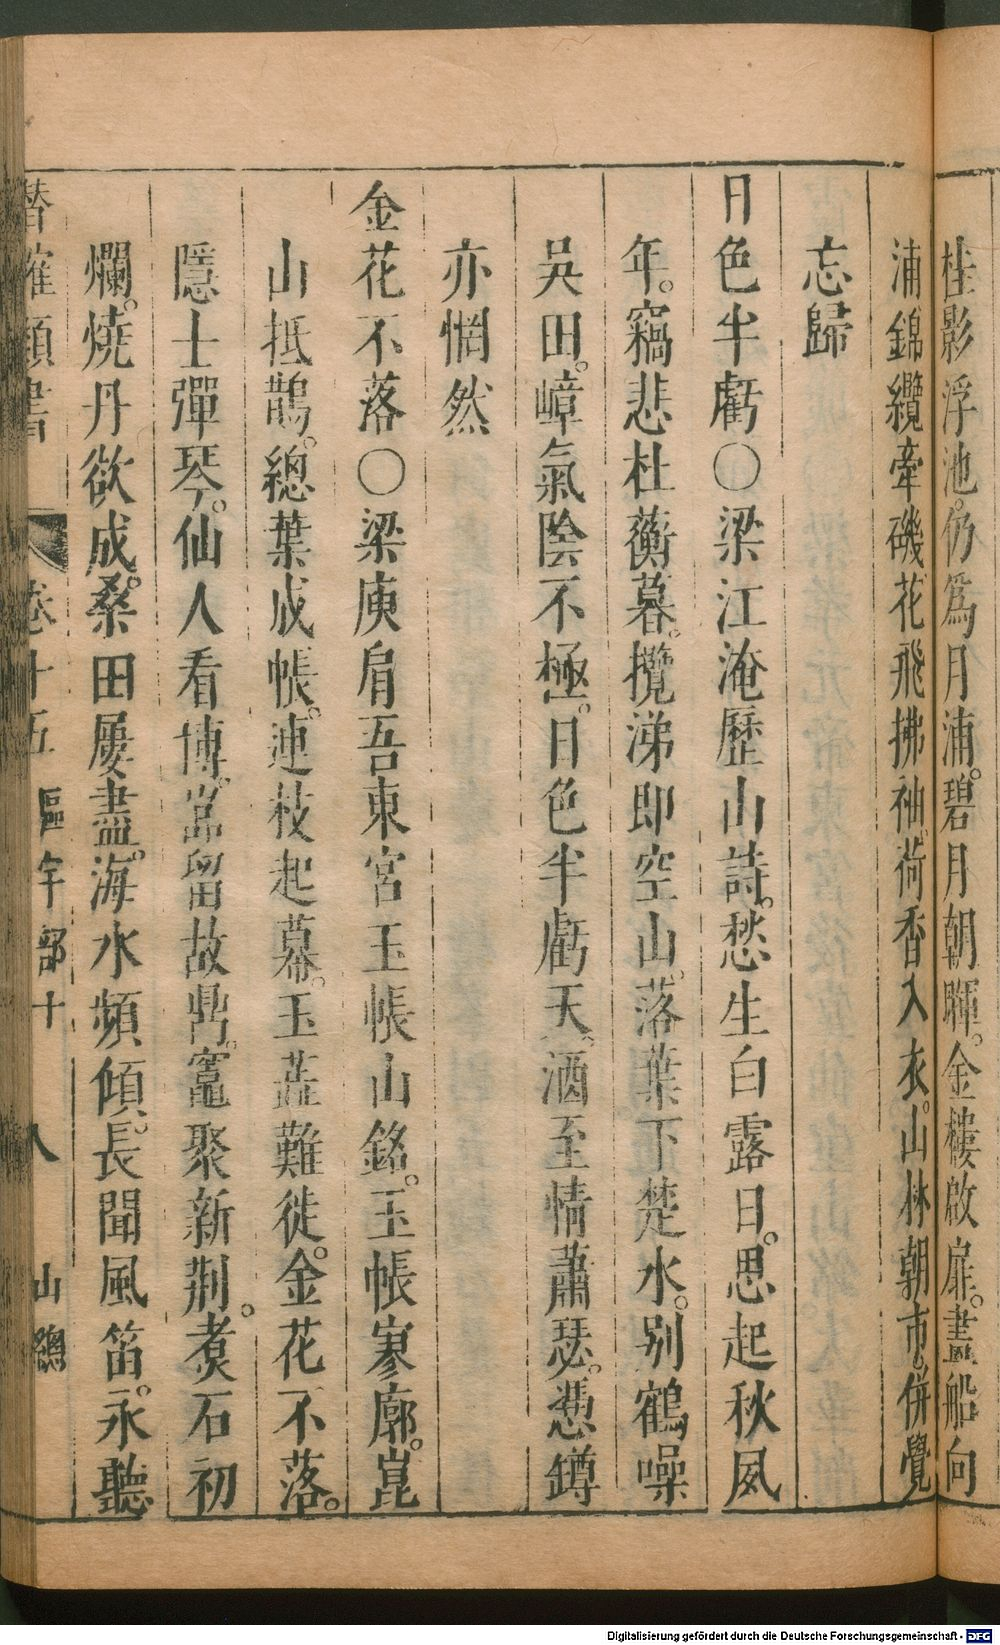 桂影浮池。仍爲月浦。碧月朝暉。金樓啟扉。畫船向
浦錦纜牽磯花飛拂袖荷香入衣。山林朝市。併覺
忘歸
日色半虧〇梁江淹歷山詩。愁生白露日。思起秋風
年。竊悲杜蘅暮。攬涕即空山。落葉下楚水。别鶴噪
吳田。嶂氣陰不極。日色半虧天。酒至情蕭瑟。憑鐏
亦惘然
金花不落〇梁庾肩吾東宮玉帳山銘。玉帳寥廓。崑
山抵鵲。總葉成帳。連枝起幕。玉蘂難徙。金花不落。
隱士彈琴。仙人看博。嵓留故鼎。竈聚新荆。煮石初
爛。燒丹欲成。桑田屢盡。海水頻傾。長聞風笛。永聽
潛確類書 卷十五 區宇部十 八 山鷄
Digitalisierung gefördert durch die Deutsche Forschungsgemeinschaft - DFG